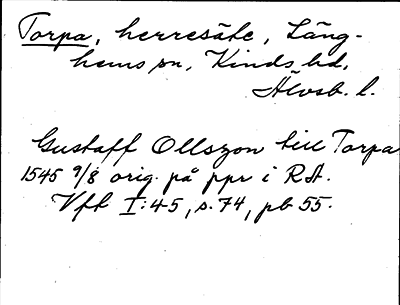 Torpa, herresäte, Läng-
hems sn, Kinds hd,
Älvsb. l.
Gustaff Ollszon till Torpa
1545 9/8 orig. på ppr i RA.
Vfk I:45, s. 74, pb 55.